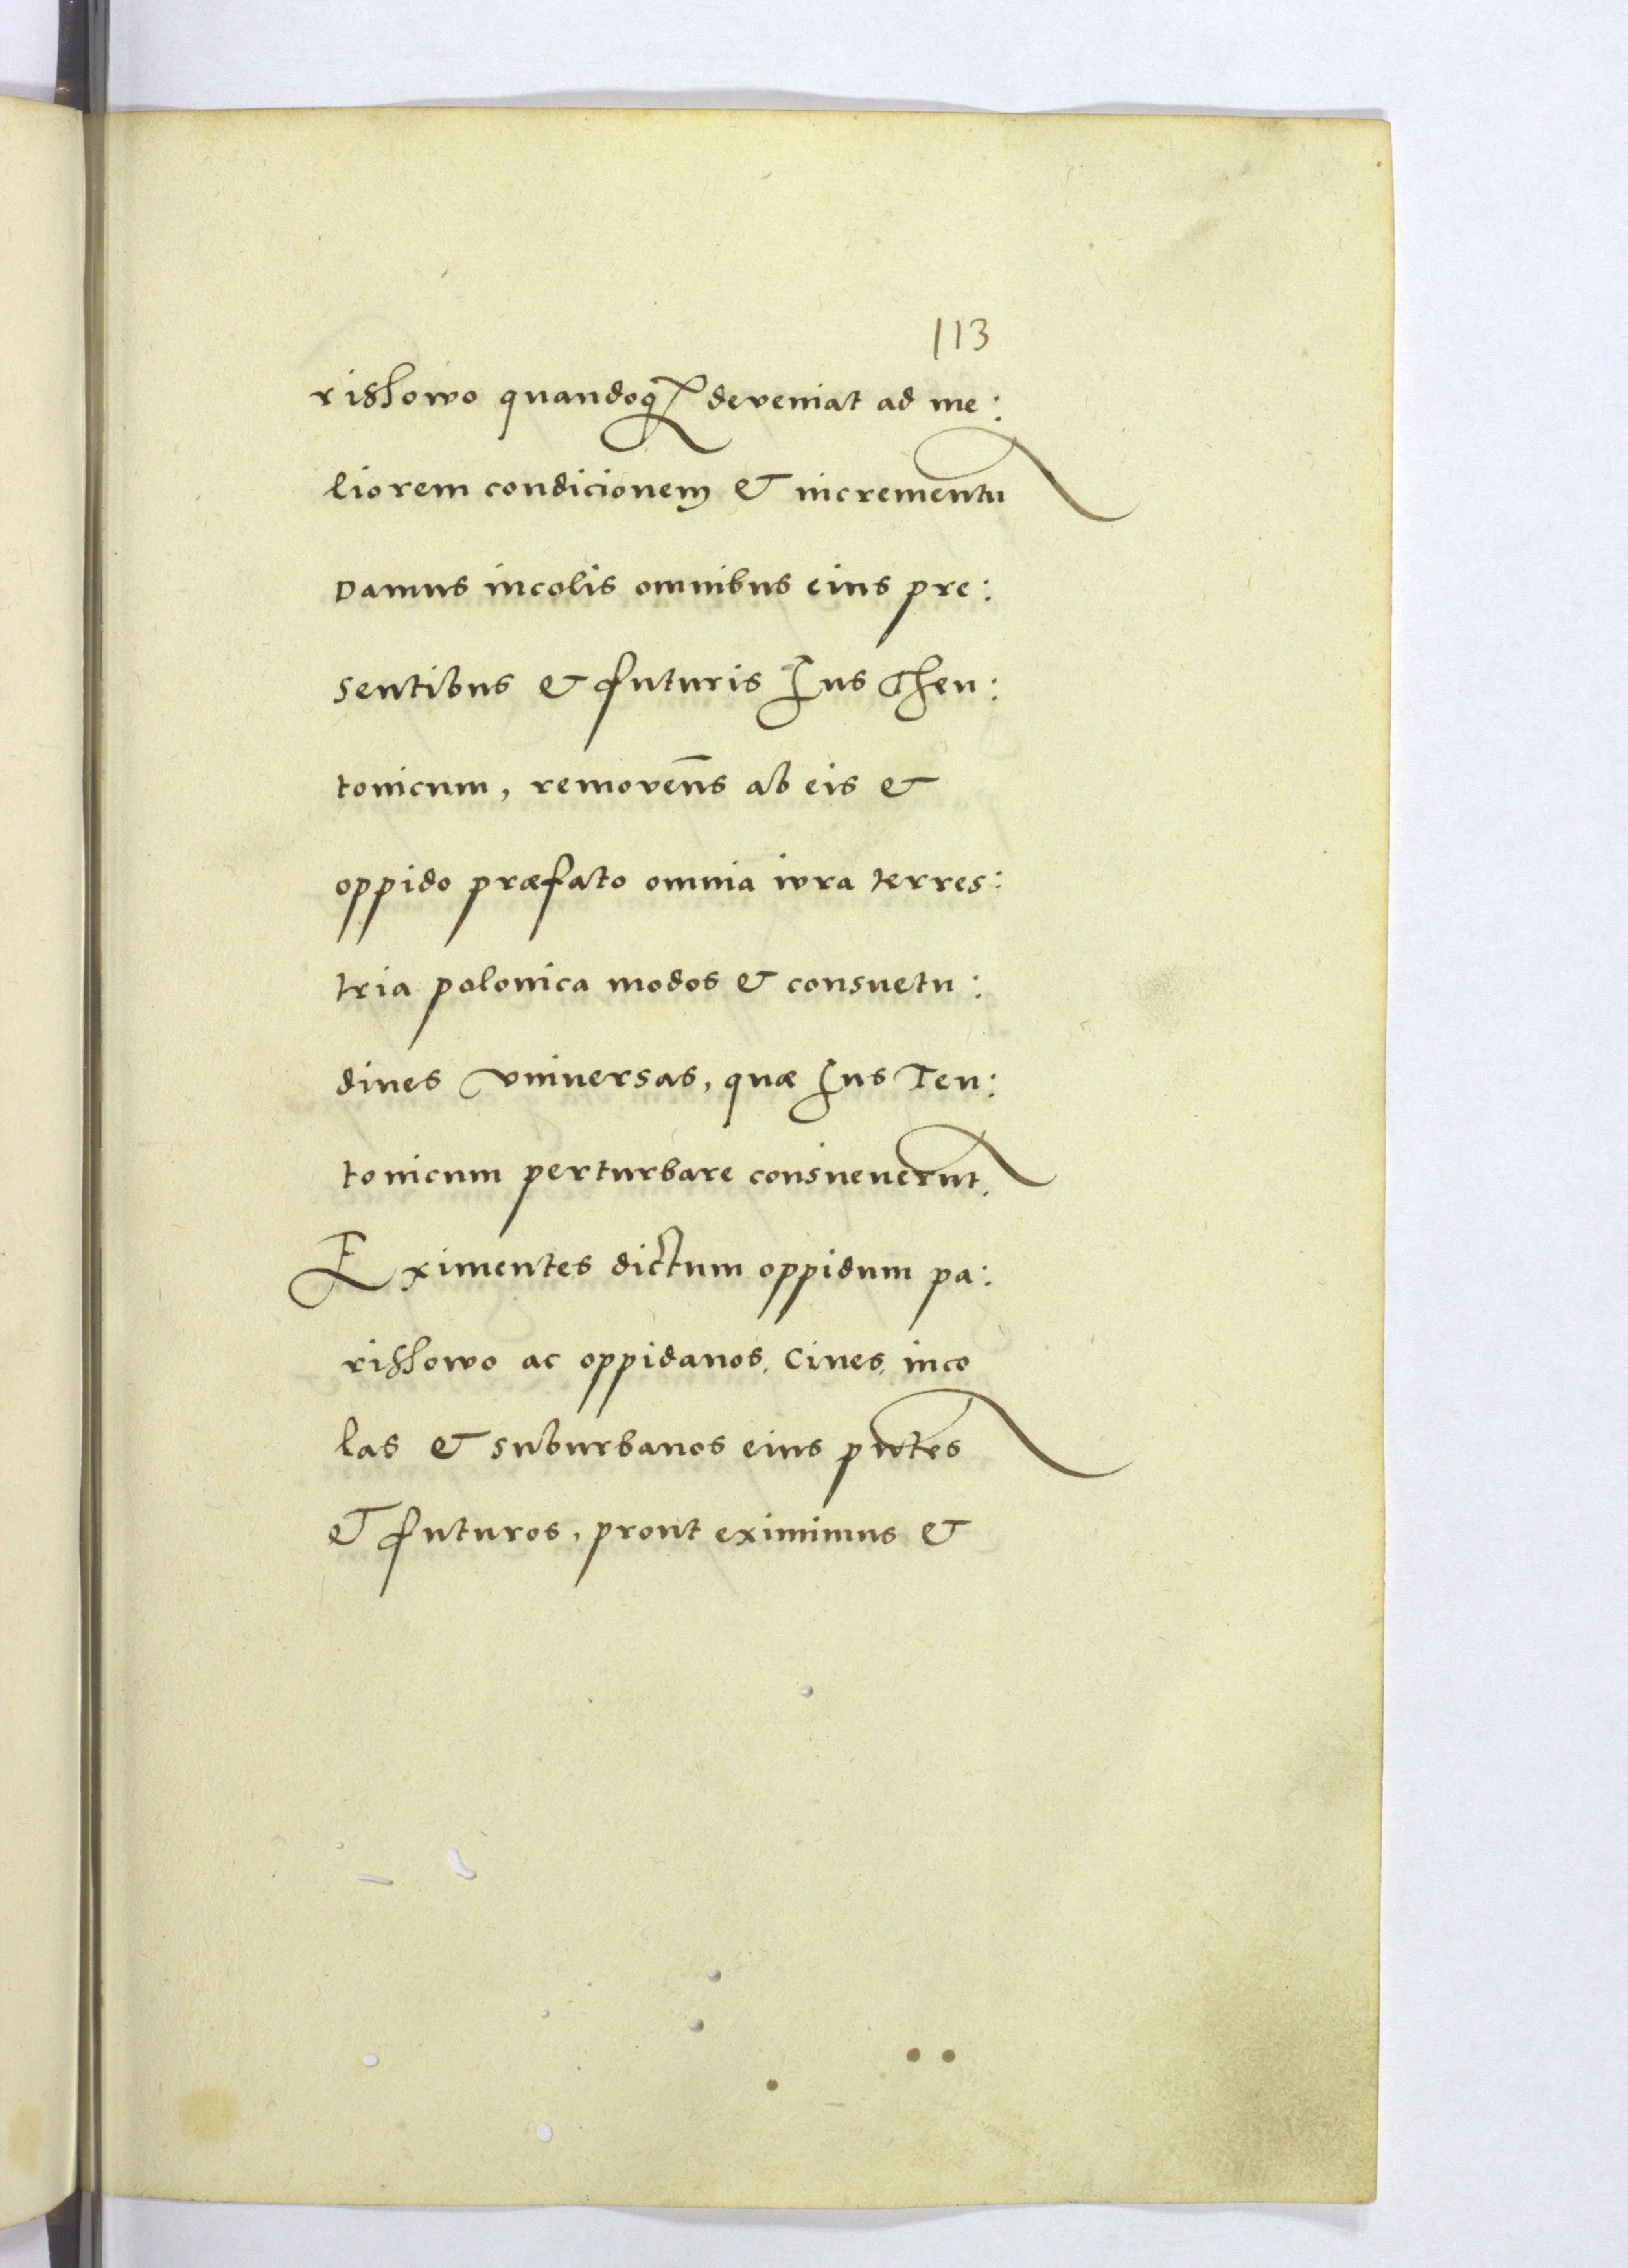 113
rissowo quandoq deveniat ad me:
liorem condicionem & incrementū
Damus incolis omnibus eius pre:
sentibus & futuris Ius Theu:
tonicum, removen̄s ab eis &
oppido præfato omnia iura terres:
tria polonica modos & consuetu:
dines vniuersas, quæ Ius Teu:
tonicum perturbare consueuerūt.
Eximentes dictum oppidum pa:
rissowo ac oppidanos, Ciues, inco
las & suburbanos eius pn̄tes
& futuros, prout eximimus &